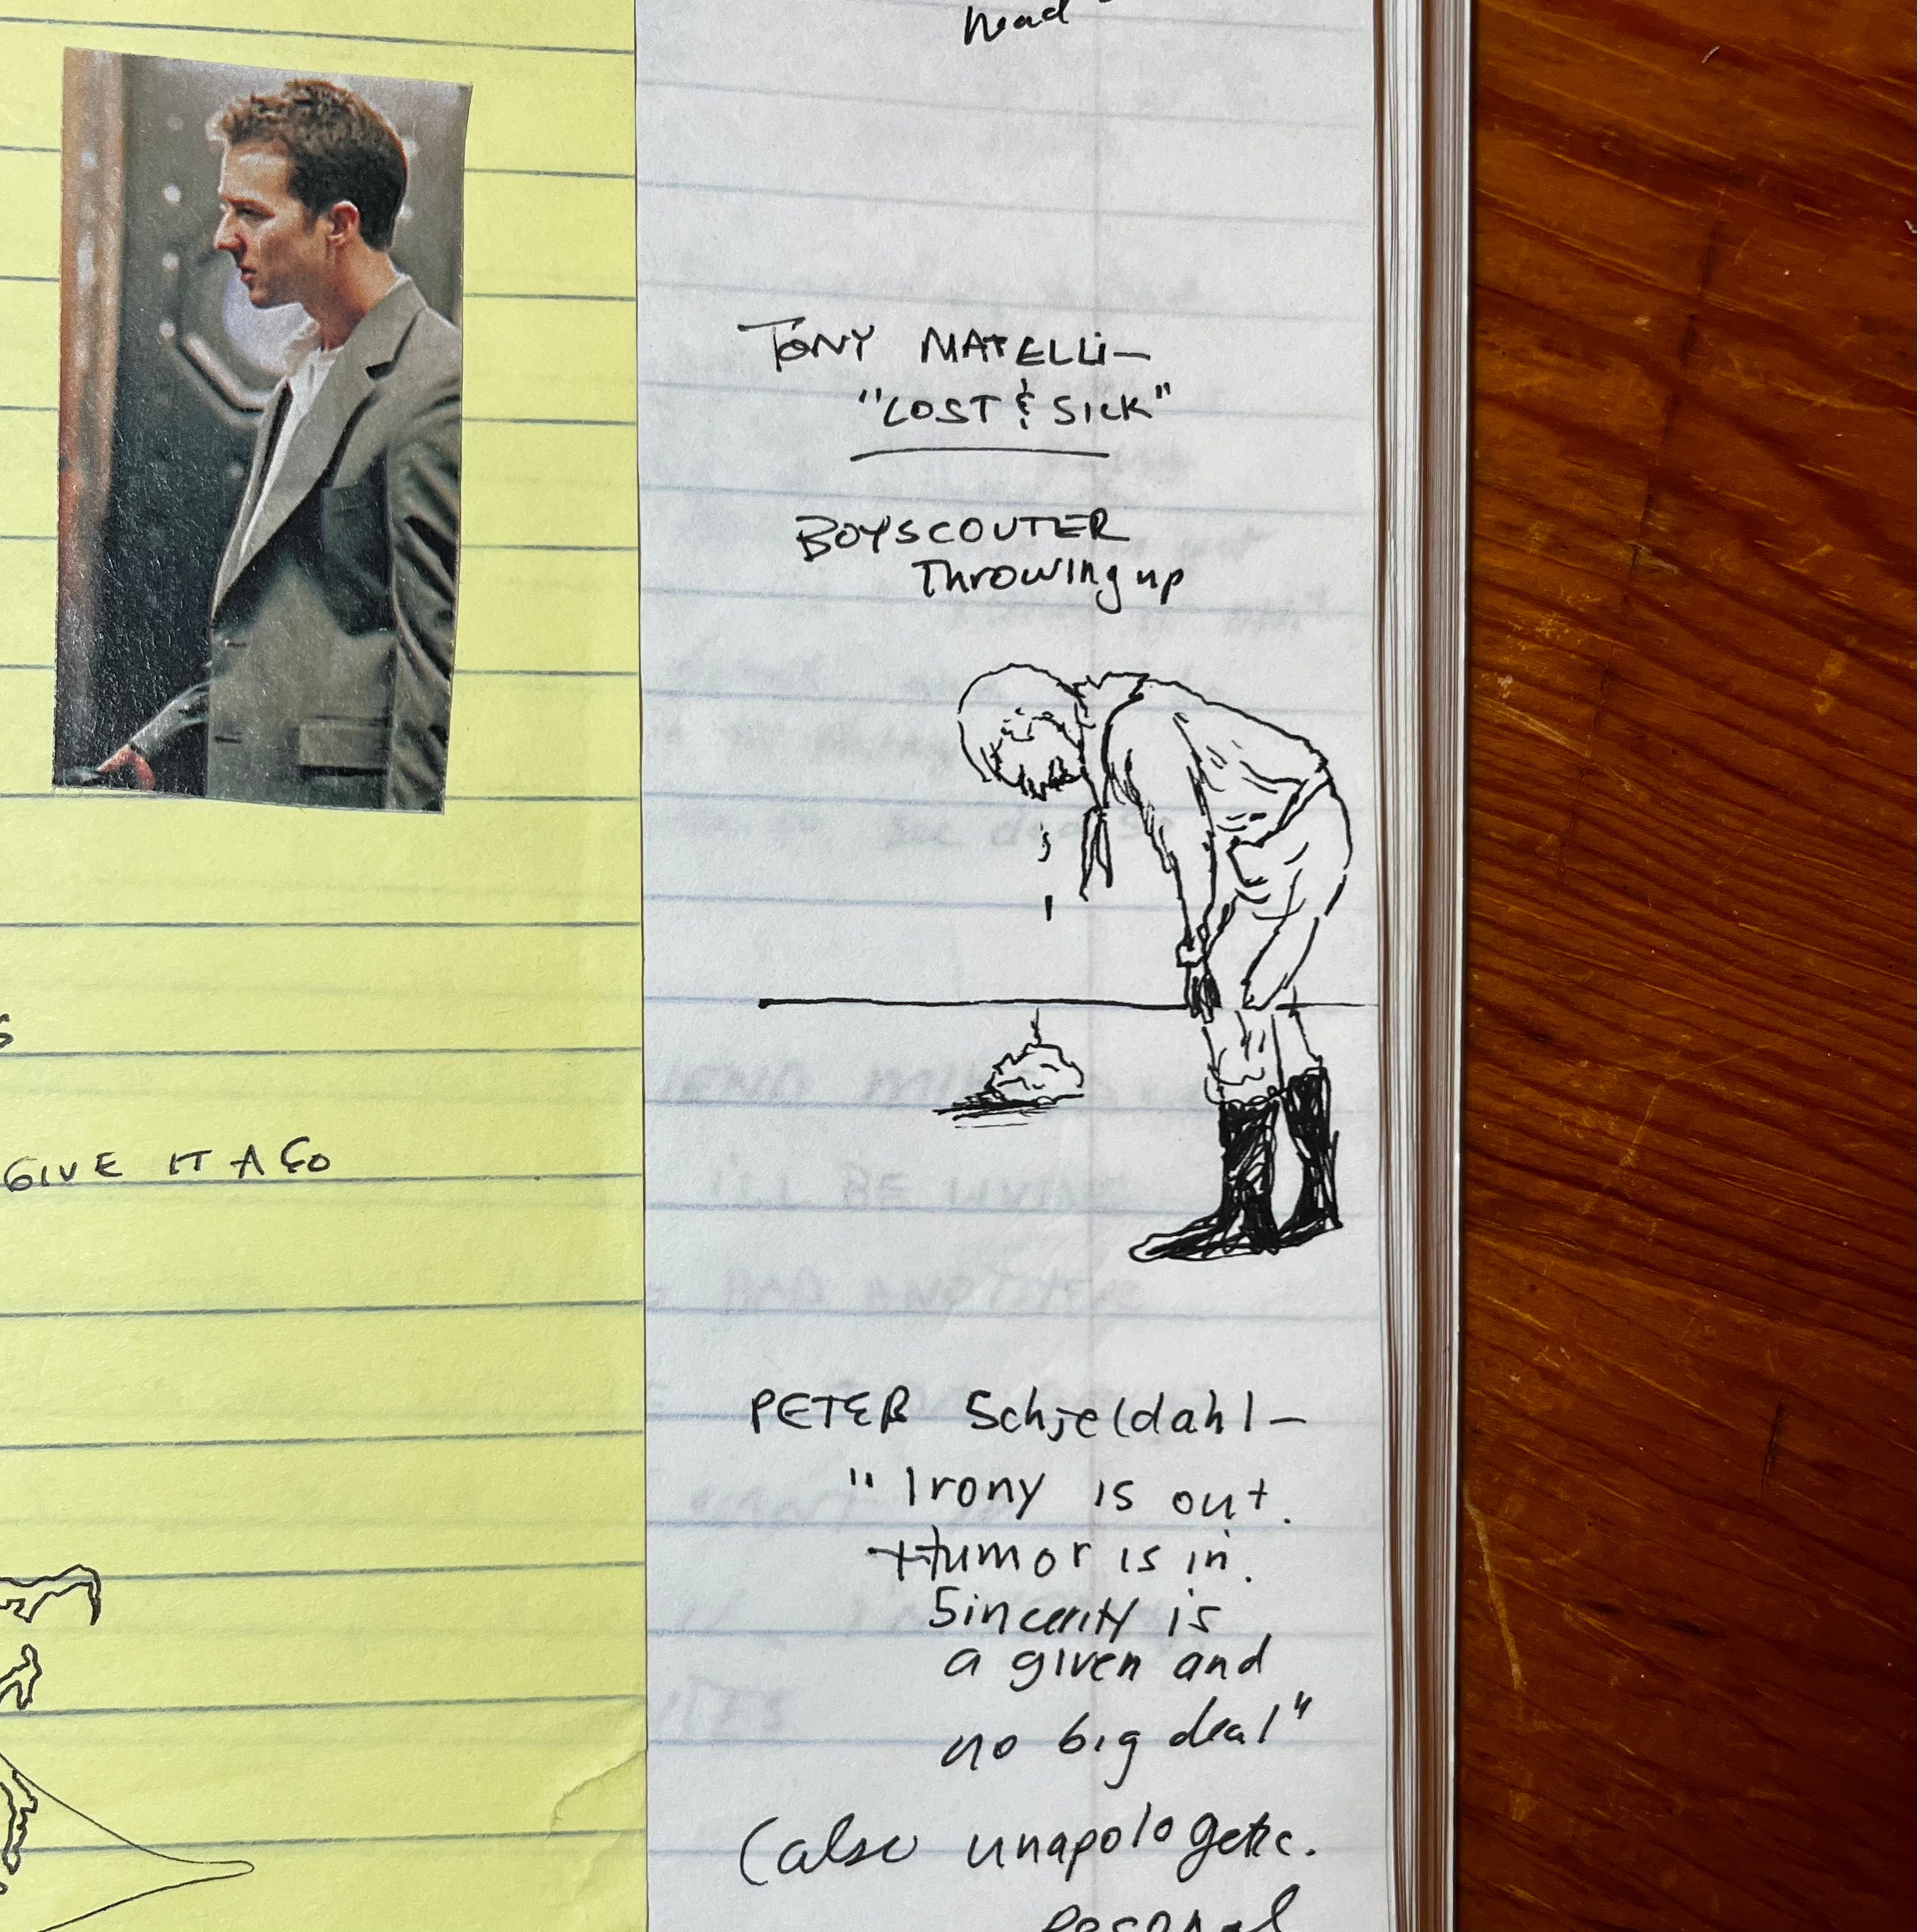 head
TONY MATELLi—
"LOST & SICK"
BOYSCOUTER
Throwing up
GIVE IT A GO
PETER Schjeldahl—
"Irony is out.
Humor is in.
Sincerity is
a given and
no big deal"
(also unapologetic.